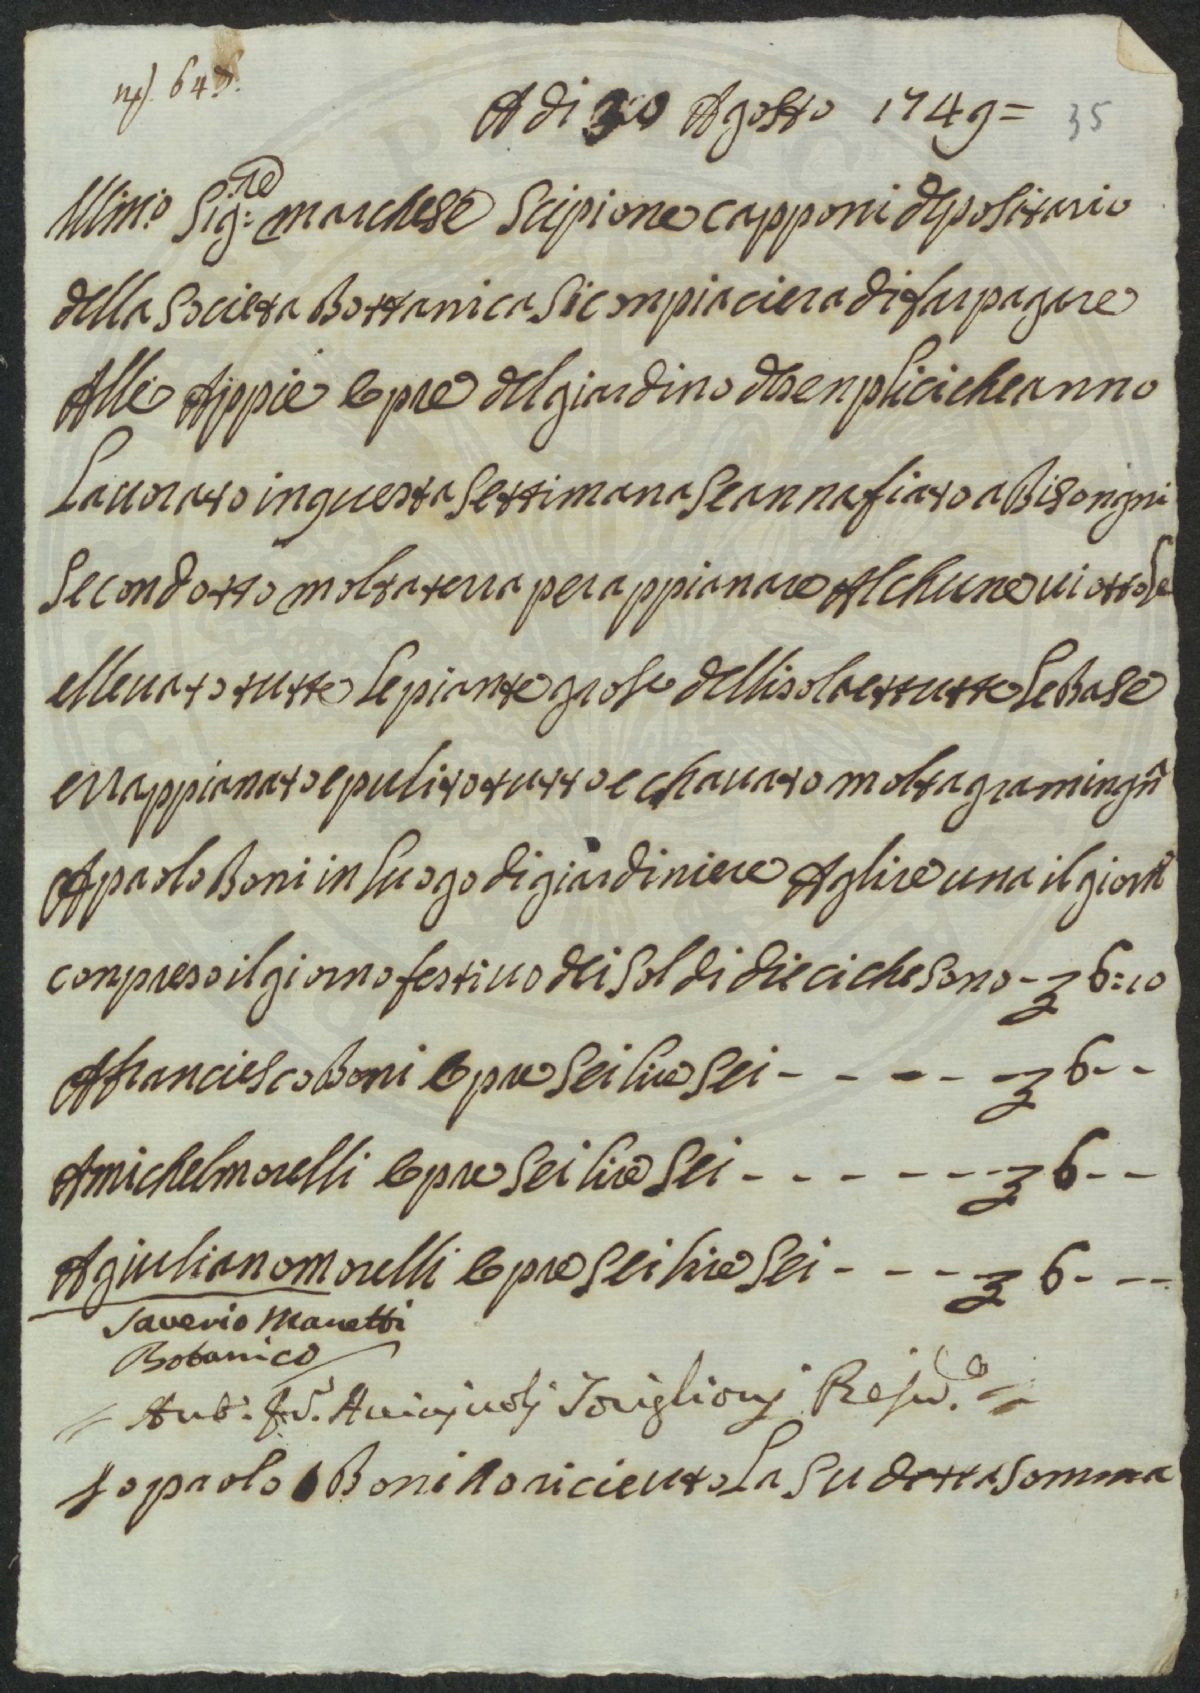 648.
A di 30 Agosto 1749=
35
Illmo: Sig:re marchese Scipione capponi depositario
della Societa Bottanica Si conpiaciera di far pagare
Alle Appie Opre del giardino de senplici che anno
Lavorato in questa Settimana Se annafiato a Bisongni
Se condotto molta terra per appianare Alchune viottole
e llevato tutte le piante grose dell isola e ttutte le Base
e rrappianato e pulito tutto e chavato molta gramingn
A paolo Boni in luogo di giardiniere A glire una il giorn
conpreso il giorno festivo dei Soldi dieci che sono - 6:10
A franciesco Boni Opre Sei lire Sei - - - - - 6 - -
A michel morelli Opre Sei lire Sei - - - - - - 6 - -
A giuliano morelli Opre Sei lire Sei - - - - 6 - - -
Saverio Manetti
Botanico
Io paolo Boni o riceuto La Su detta somma